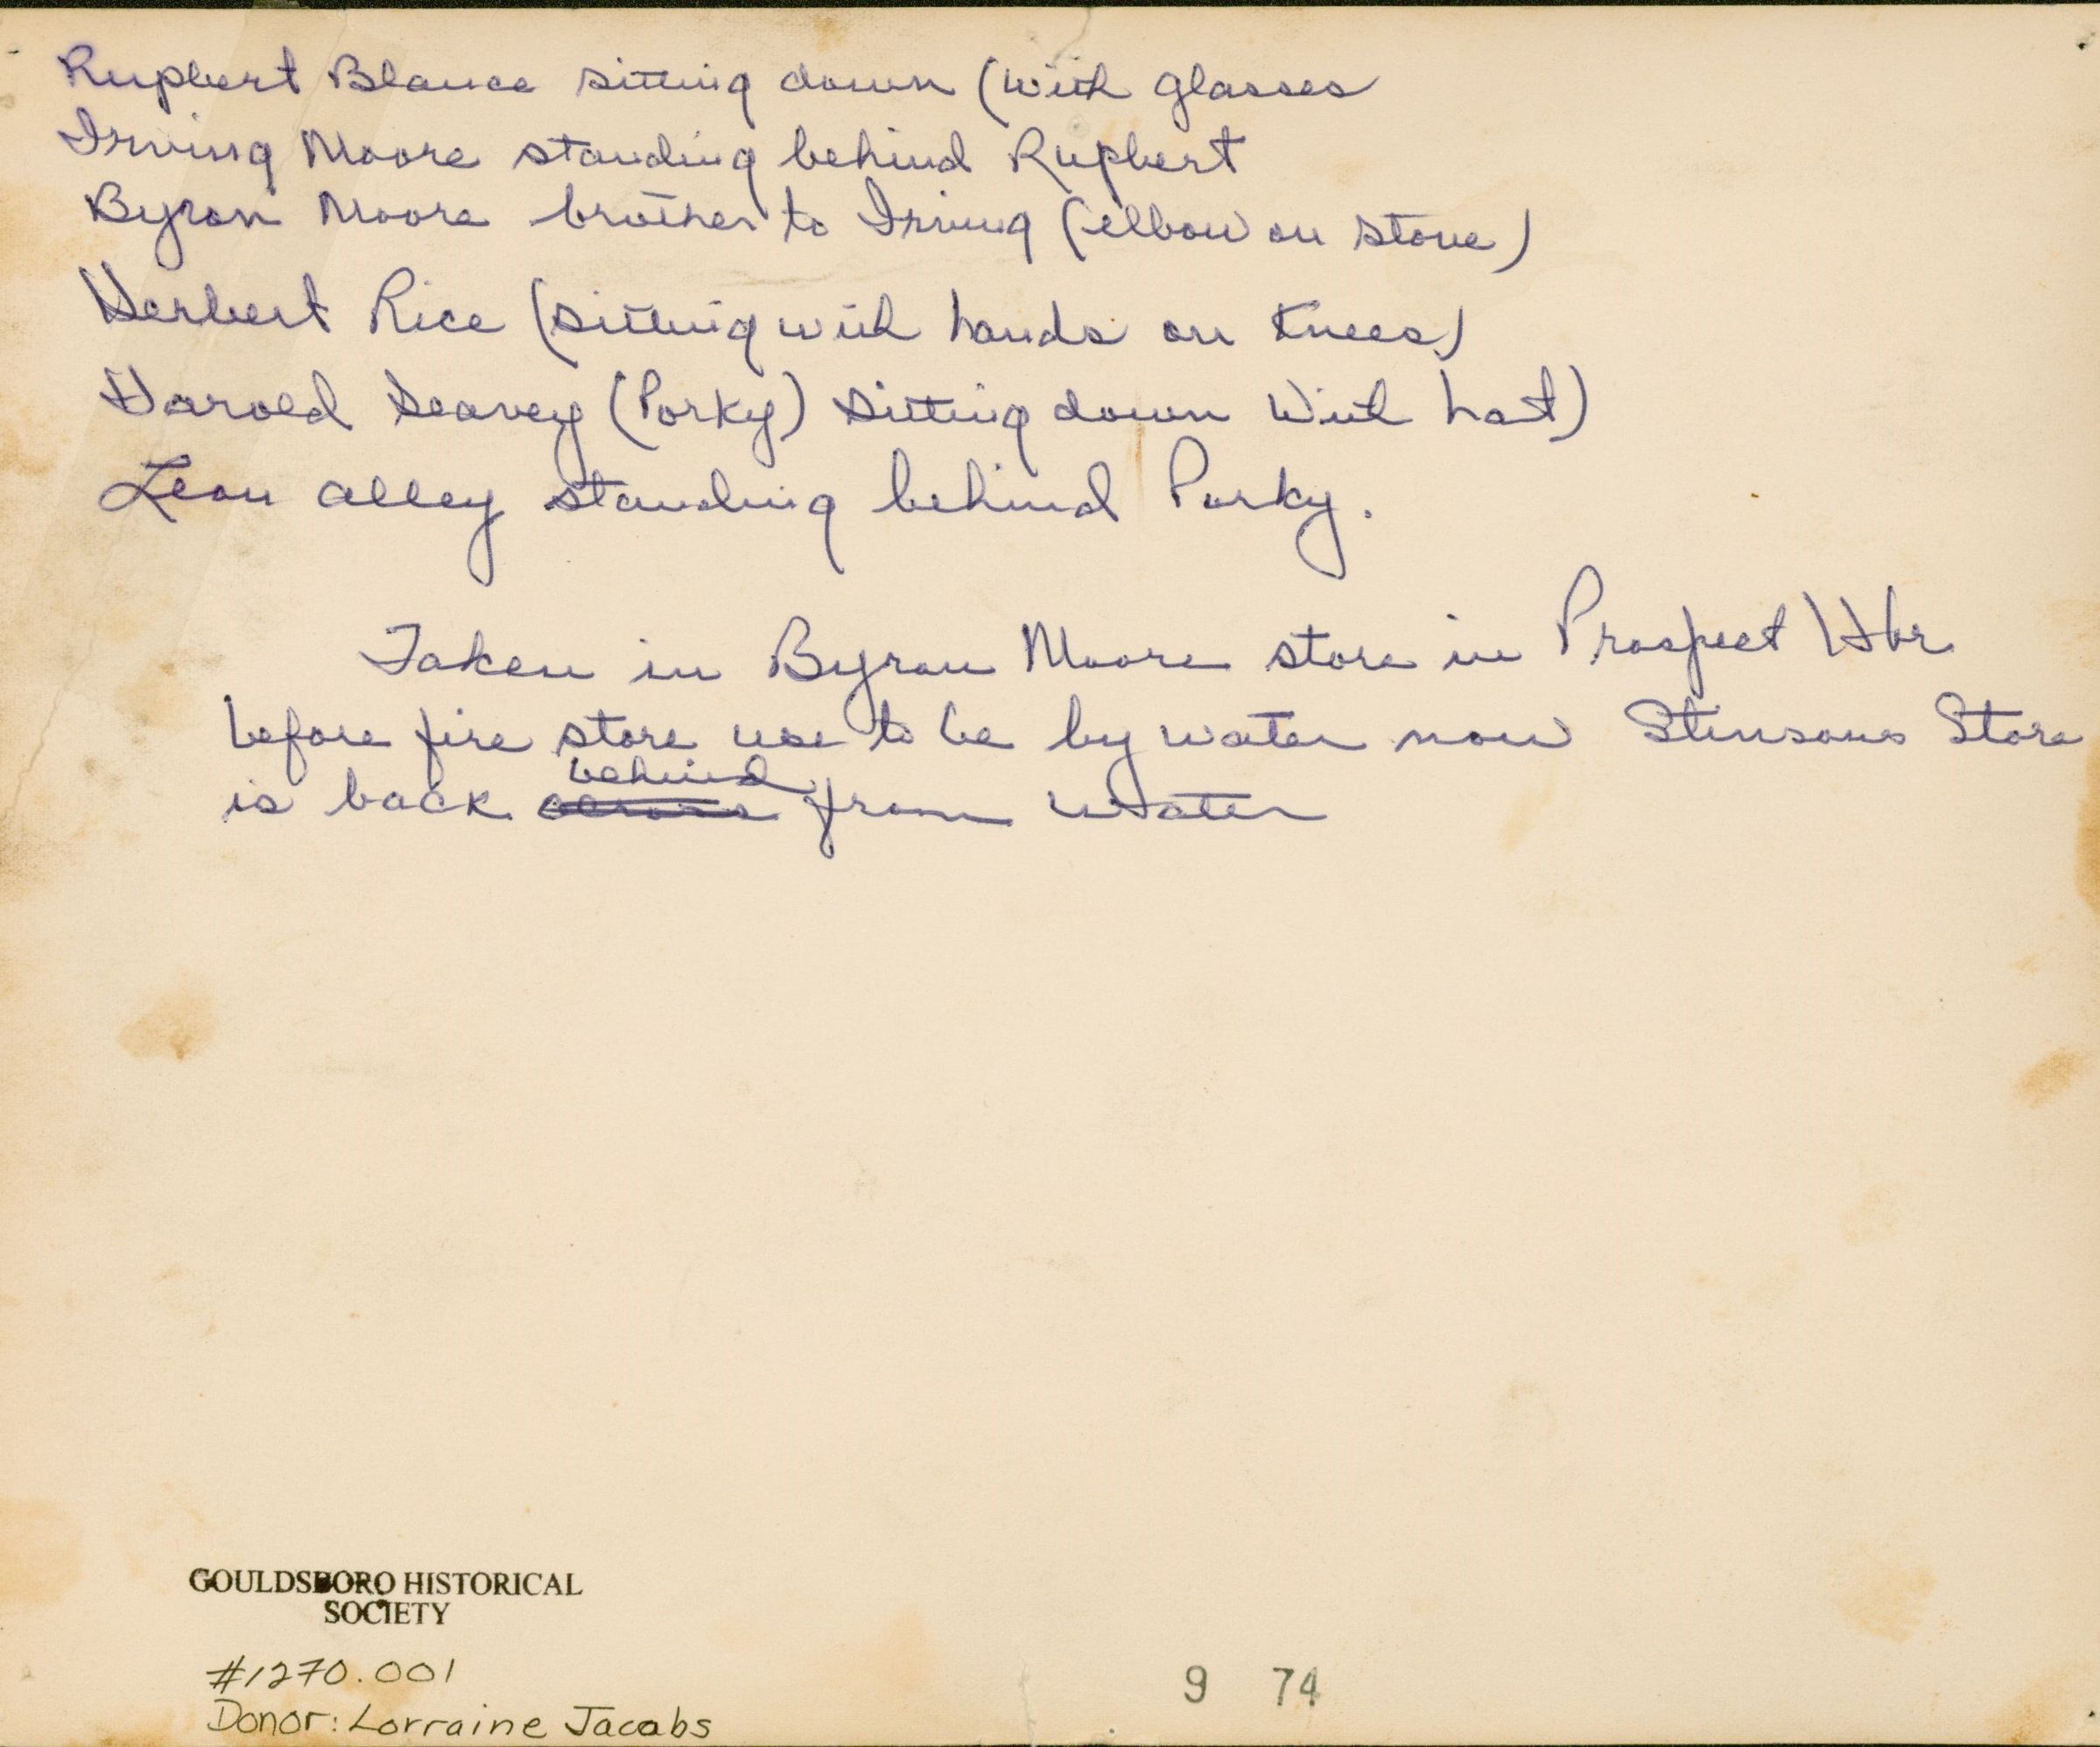 Rupbert Blance sitting down (with glasses
Irving Moore standing behind Rupbert
Byron Moore brother to Irving (elbow on stove)
Herbert Rice (sitting with hands on knees)
Harold Seavey (Porky) sitting down with hat)
Leon alley standing behind Porky.
Taken in Byron Moore store in Prospect Hbr
before fire store use to be by water now Stinsons Store
behind
is back across from water
GOULDSBORO HISTORICAL
SOCIETY
#1270.001
Donor: Lorraine Jacobs
9 74